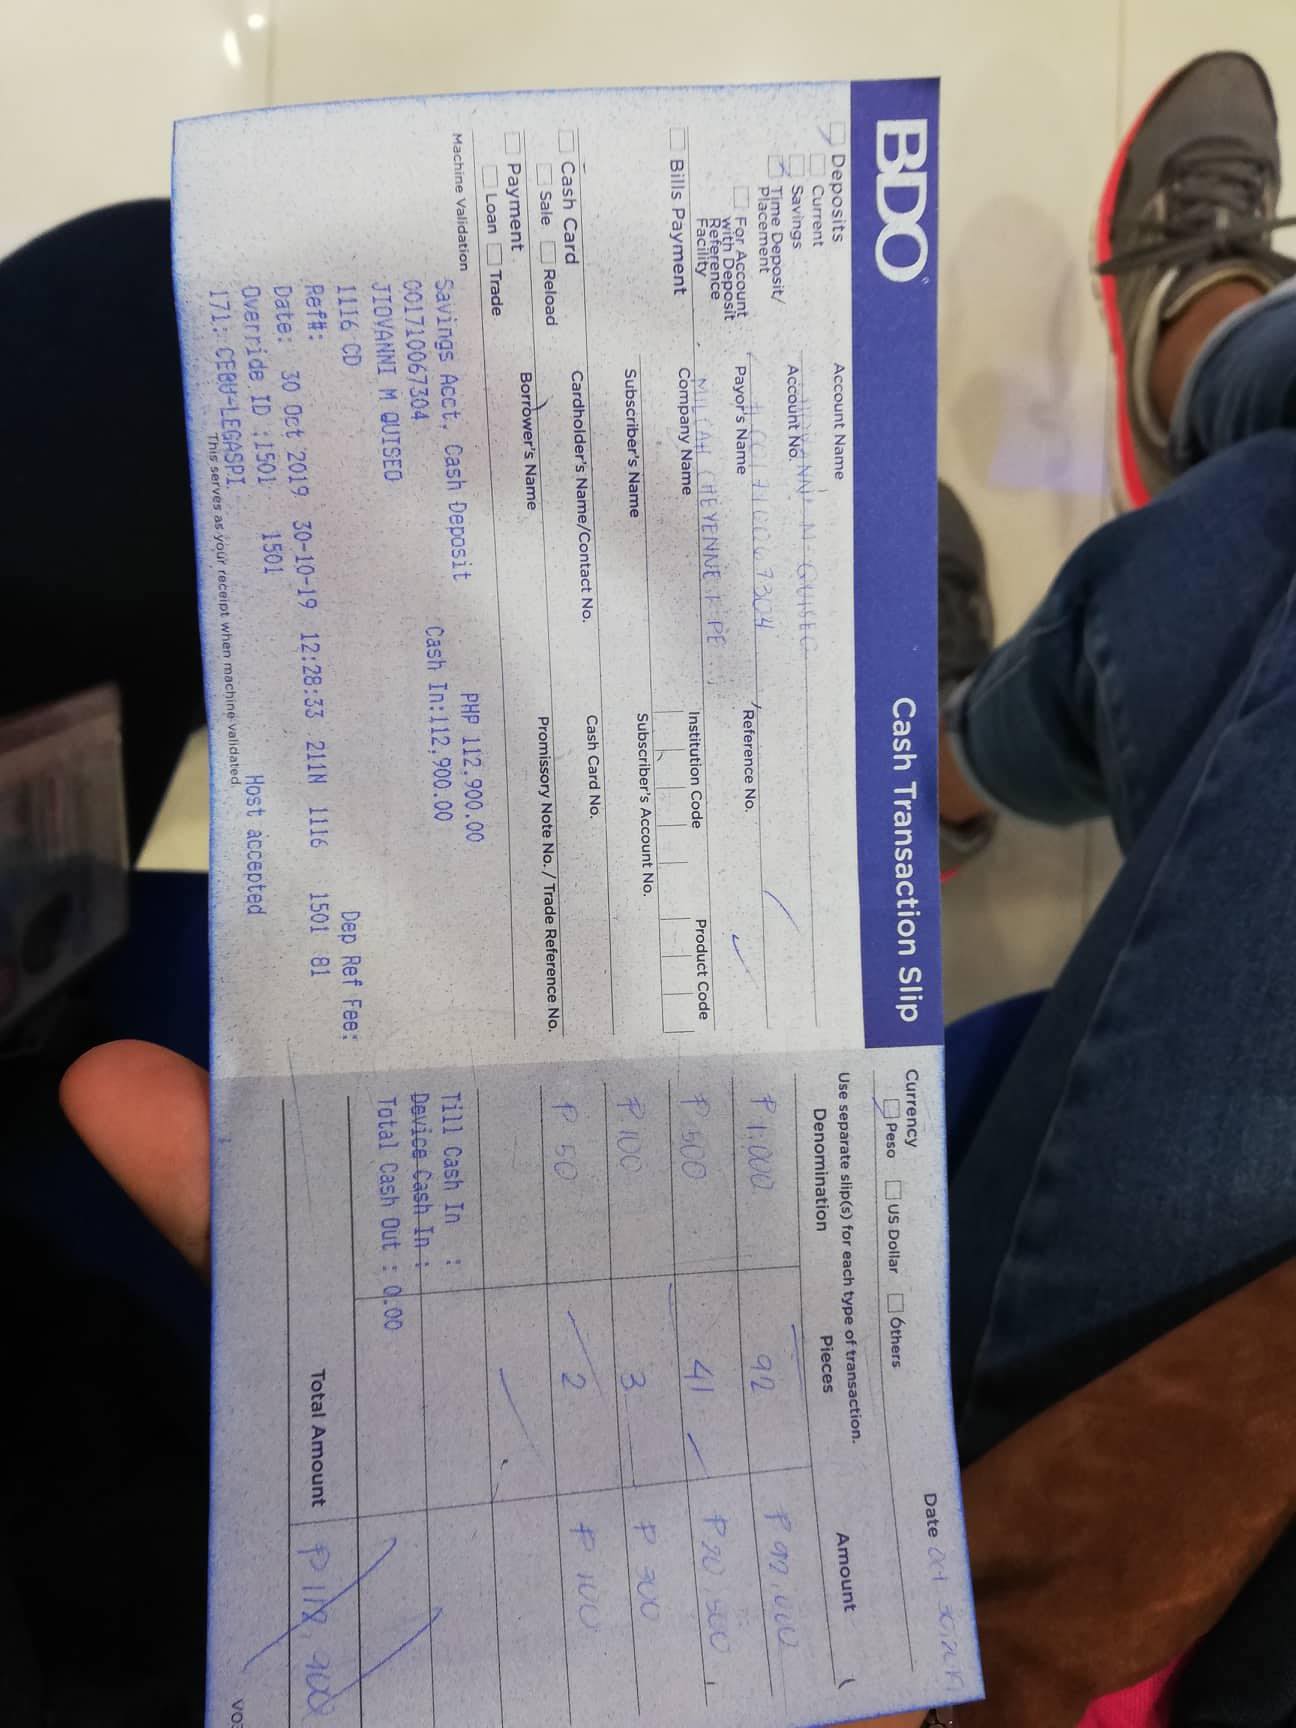 BDO
Cash Transaction Slip
Currency
Peso
US Dollar
Others
Date Oct 30, 2019
Deposits
Current
Savings
Time Deposit/
Placement
For Account
with Deposit
Reference
Facility
Account Name
JIOVANNI M. QUISEO
Account No.
001710067304
Payor's Name
Reference No.
MILCAH CHEYENNE
Bills Payment
Company Name
Institution Code
Product Code
Subscriber's Name
Subscriber's Account No.
Cash Card
Sale
Reload
Cardholder's Name/Contact No.
Cash Card No.
Payment
Loan
Trade
Borrower's Name
Promissory Note No. / Trade Reference No.
Machine Validation
Savings Acct. Cash Deposit PHP 112,900.00
001710067304 Cash In:112,900.00
JIOVANNI M QUISEO
1116 CD
Ref#: Dep Ref Fee:
Date: 30 Oct 2019 30-10-19 12:28:33 211N 1116 1501 81
Override ID :1501 1501
171: CEBU-LEGASPI Host accepted
This serves as your receipt when machine validated
Use separate slip(s) for each type of transaction.
Denomination Pieces Amount
₱ 1,000 92 ₱ 92,000
₱ 500 41 ₱ 20,500
₱ 100 3 ₱ 300
₱ 50 2 ₱ 100
Till Cash In :
Device Cash In :
Total Cash Out : 0.00
Total Amount ₱ 112,900